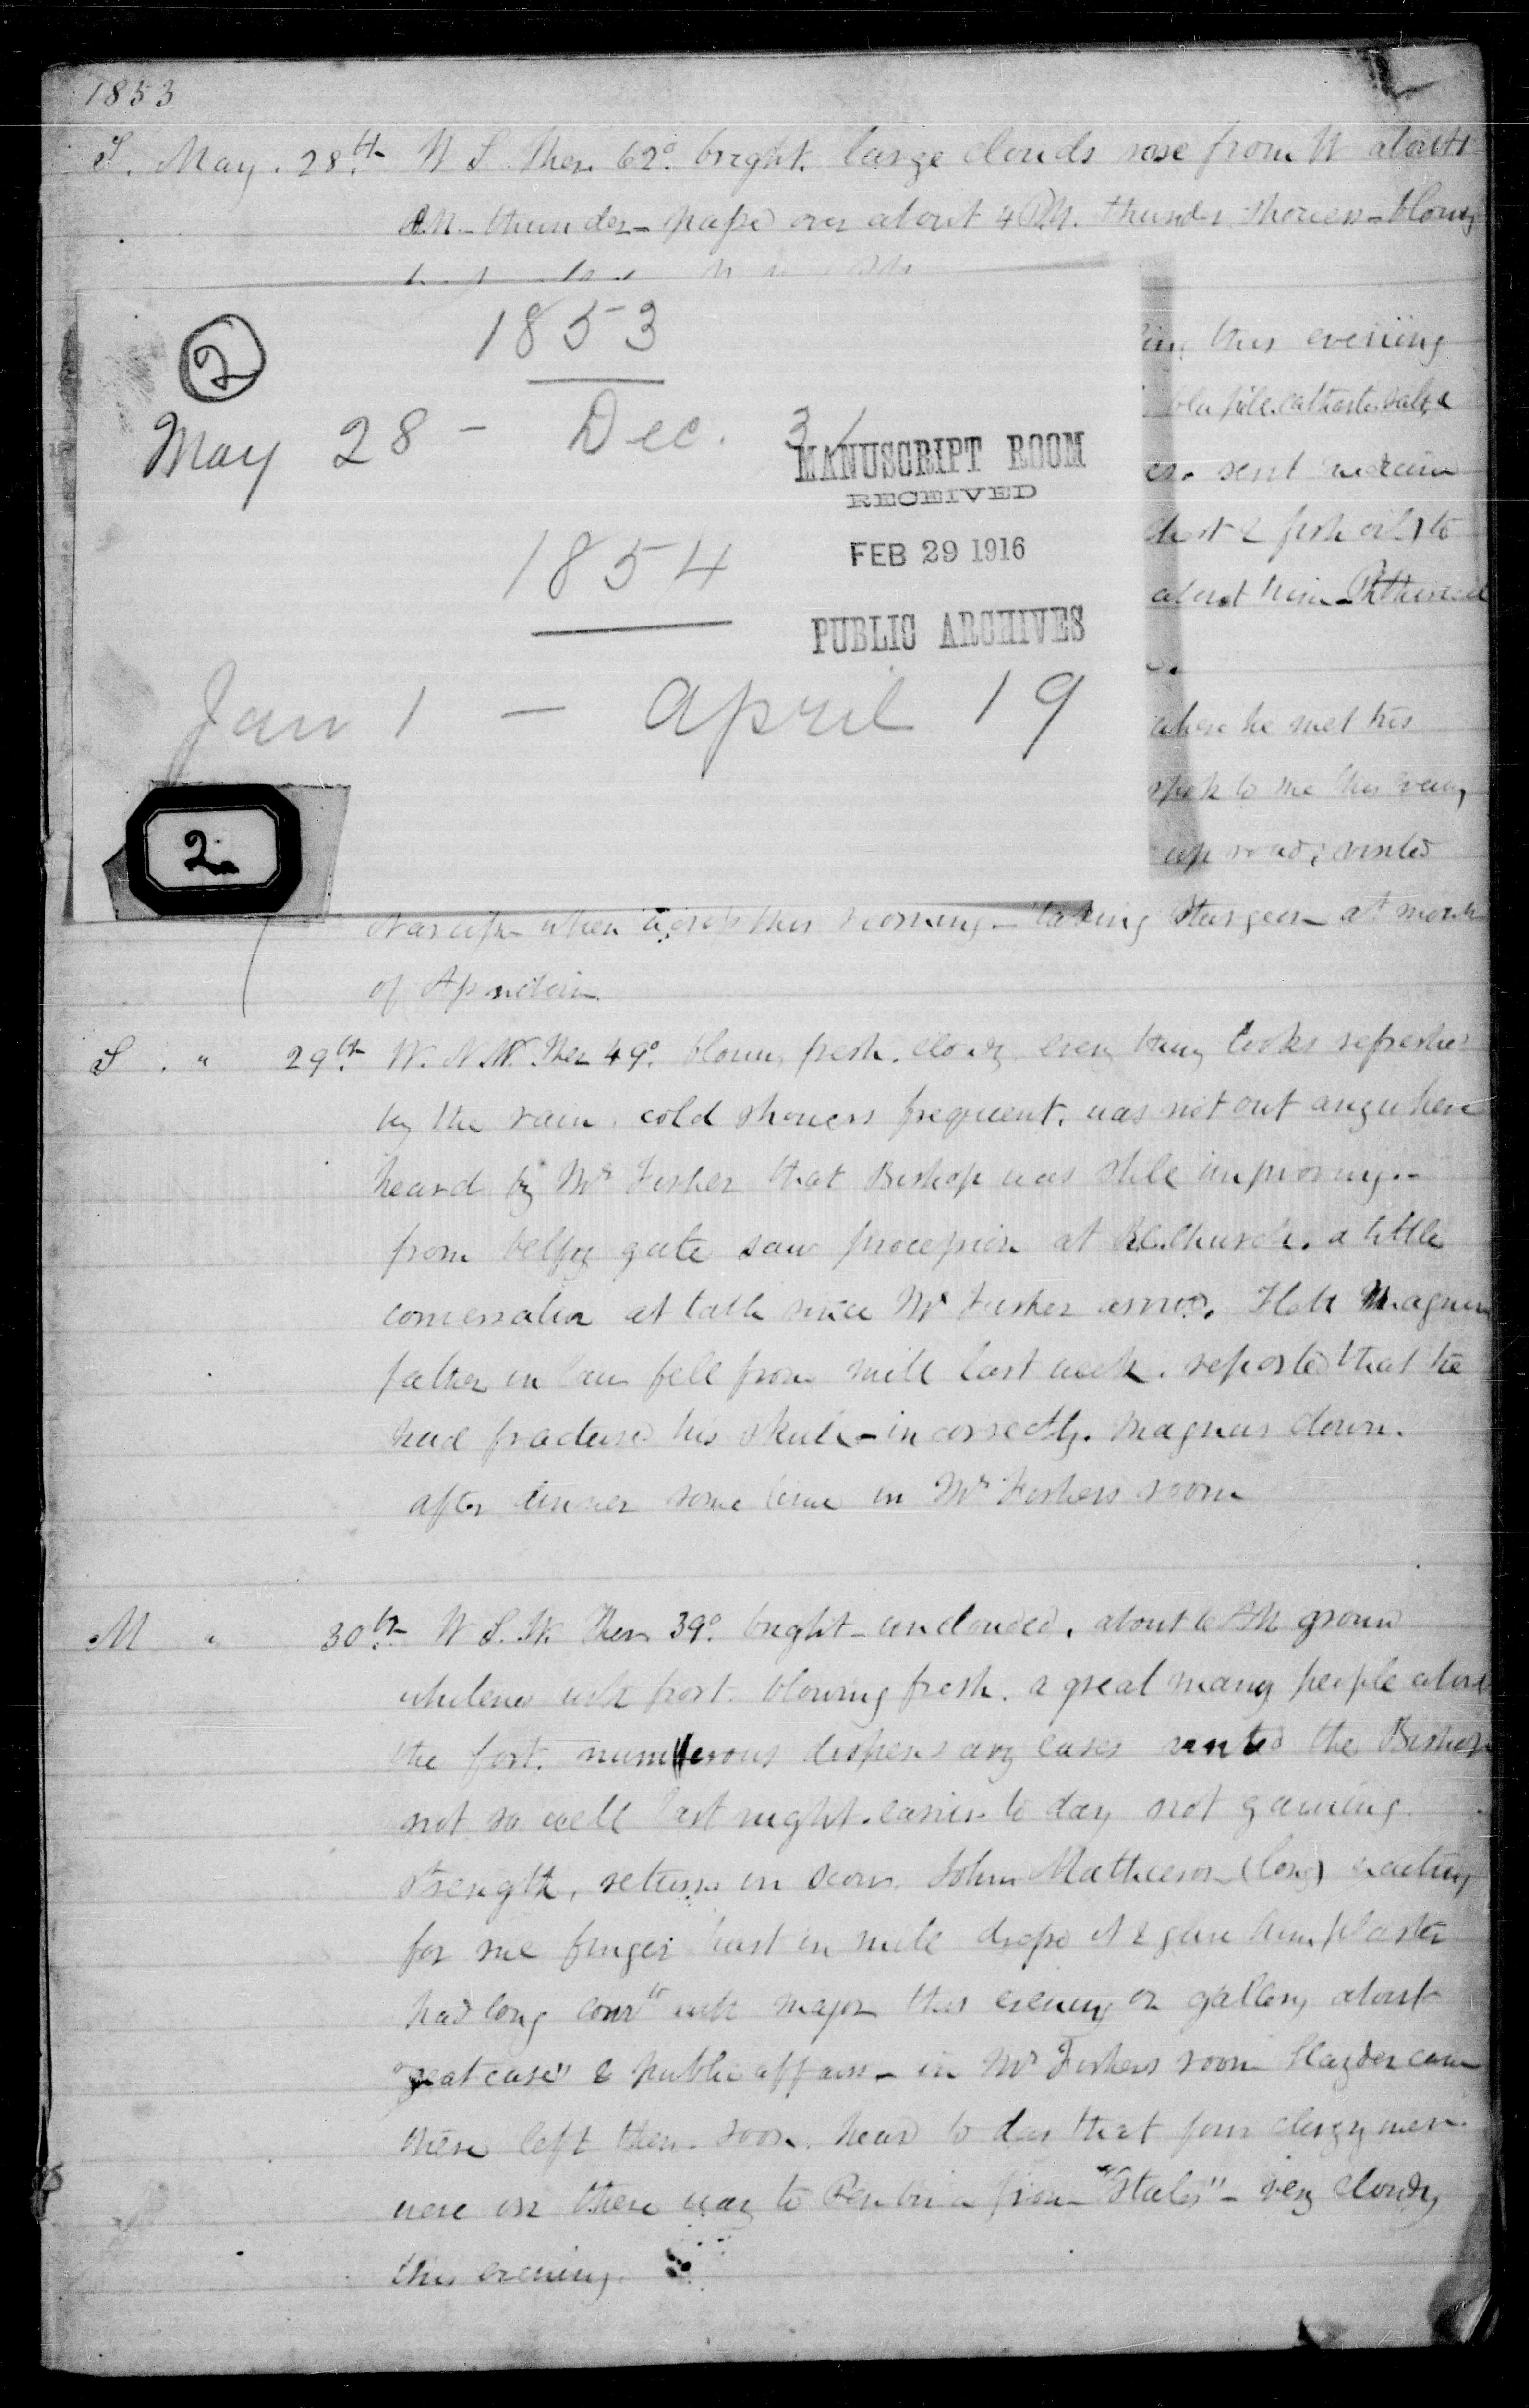 1853
S. May. 28th W S. Ther. 62° bright. large clouds rose from W about
thunder - pass'd over about 4 P.M. thunder showers - blowing
2
1853
May 28 - Dec. 31
MANUSCRIPT ROOM
RECEIVED
1854
FEB 29 1916
PUBLIC ARCHIVES
Jan 1 - April 19
2
this evening
sent
& fish oil) to
about him
where he met his
to me this
up road; visited
this morning - taking sturgeon at mouth
of
S. " 29th W. N.W. Ther 49°. blowing fresh. cloudy every thing looks refreshed
by the rain. cold showers frequent. was not out anywhere
heard by Mr Fisher that Bishop was still improving. -
from belfry gate saw procession at R.C. Church. a little
conversation at table since Mr Fisher arrived. Flett Magnus
father in law fell from mill last week. reported that he
had fractured his skull - incorrectly. Magnus down.
after dinner some time in Mr Fishers room
M " 30th W S.W. Ther 39°. bright - unclouded. about 6 AM ground
whitened with frost. blowing fresh. a great many people about
the fort. numerous dispensary cases visited the Bishop
not so well last night. easier to day not gaining
strength, John Matheson (long) waiting
for me finger hurt in mill dress'd it & gave him plaster
had long convn with major this evening on gallery about
"great case" & public affairs - in Mr Fishers room came
there left them soon. heard to day that four clergymen
were on there way to Pembina from "States" - very cloudy
this evening.